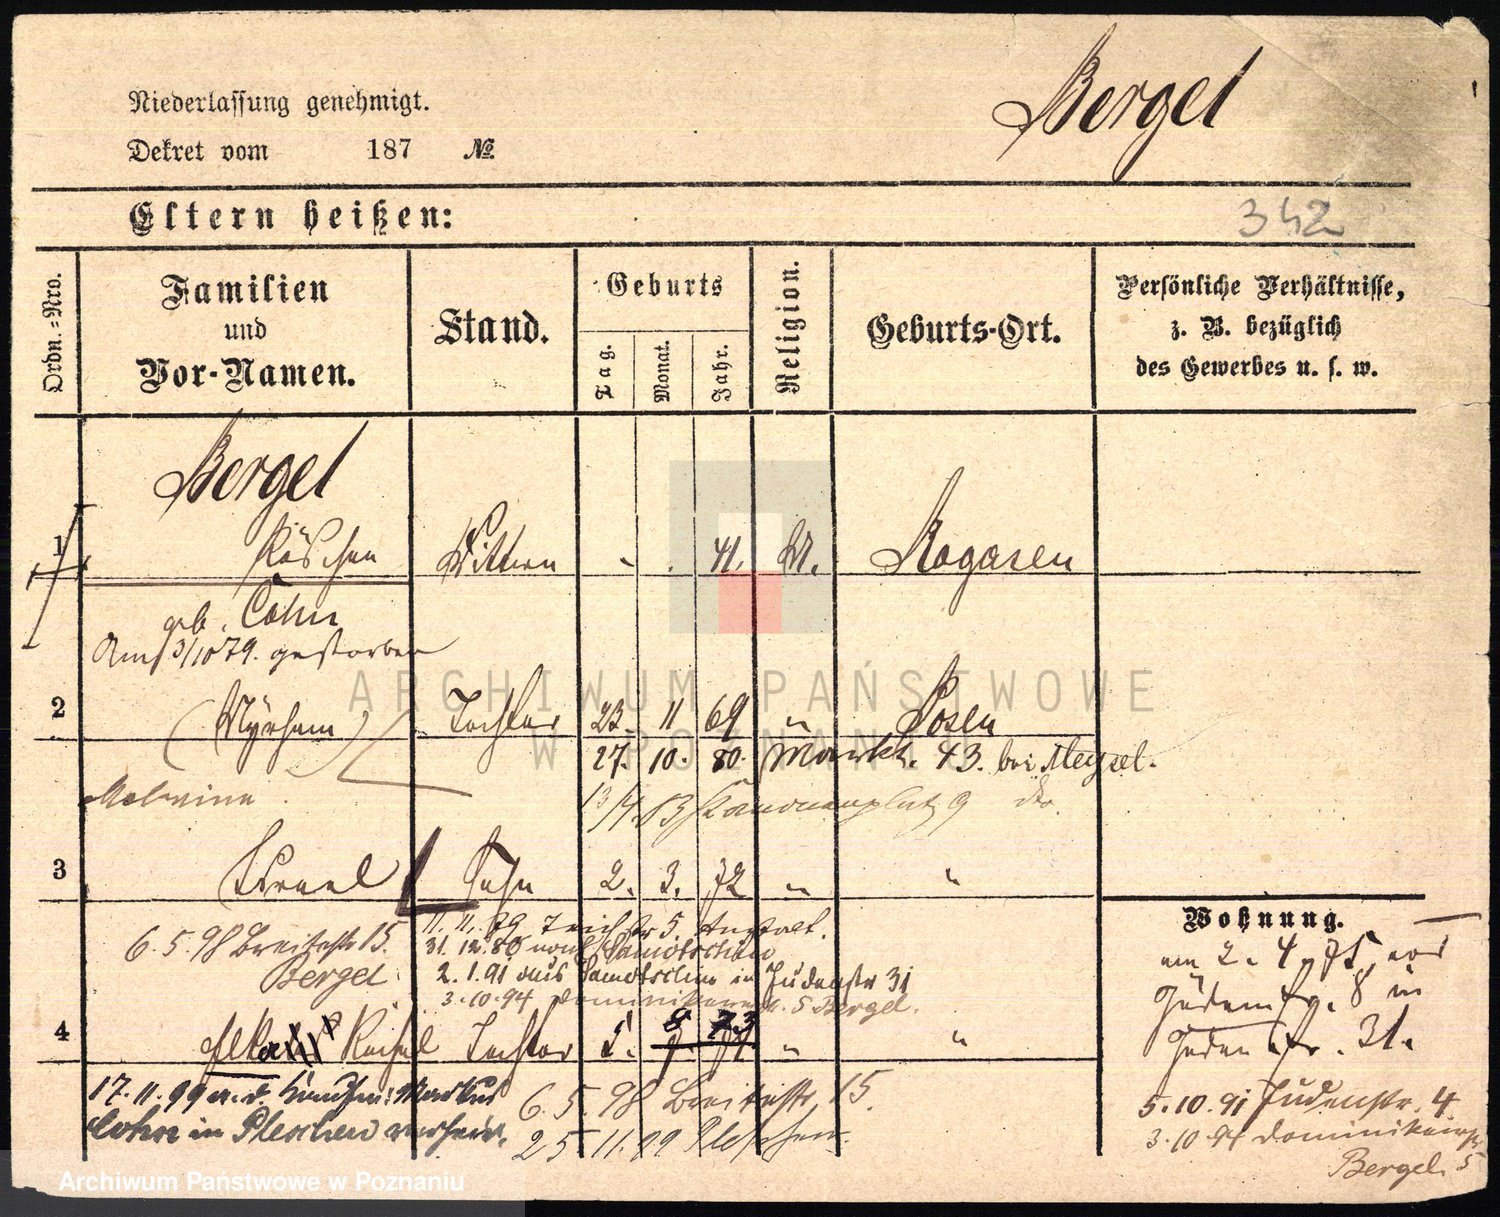 Bergel
Niederlassung genehmigt.
Dekret vom 187 №
Eltern heißen:
342
Ordn.=Nro.
Familien
und
Vor-Namen.
Stand.
Geburts
Tag.
Monat.
Jahr.
Religion.
Geburts-Ort.
Persönliche Verhältnisse,
z. B. bezüglich
des Gewerbes u. s. w.
Bergel
1 Röschen Wittwe 41. M. Rogasen
geb. Cohn
Am 3/10 79. gestorben
2 (Myrham) Tochter 23 11 69 " Posen
27. 10. 80. Markt. 43. bei
Malwine. 13/4. 83 Kanonenplatz 9 do.
3 Israel Sohn 2. 3. 72 " "
11. 11. 79 Teichstr 5.
6. 5. 98 Breitestr 15. 31. 12. 80 nach Samotschin
Bergel 2. 1. 91 aus Samotschin in Judenstr 31
3. 10. 94 5 Bergel.
4 Rachel Tochter 5. 8 73 " "
17. 11. 99 a. d. Kaufm: Markus
Cohn in Pleschen verheir.
6. 5. 98 Breitestr 15.
25. 11. 99 Pleschen.
Wohnung.
am 2. 4. 75 von
8 in
Judenstr. 31.
5. 10. 91 Judenstr. 4.
3. 10. 94 Dominikanerstr
Bergel 5
ARCHIWUM PAŃSTWOWE
W POZNANIU
Archiwum Państwowe w Poznaniu